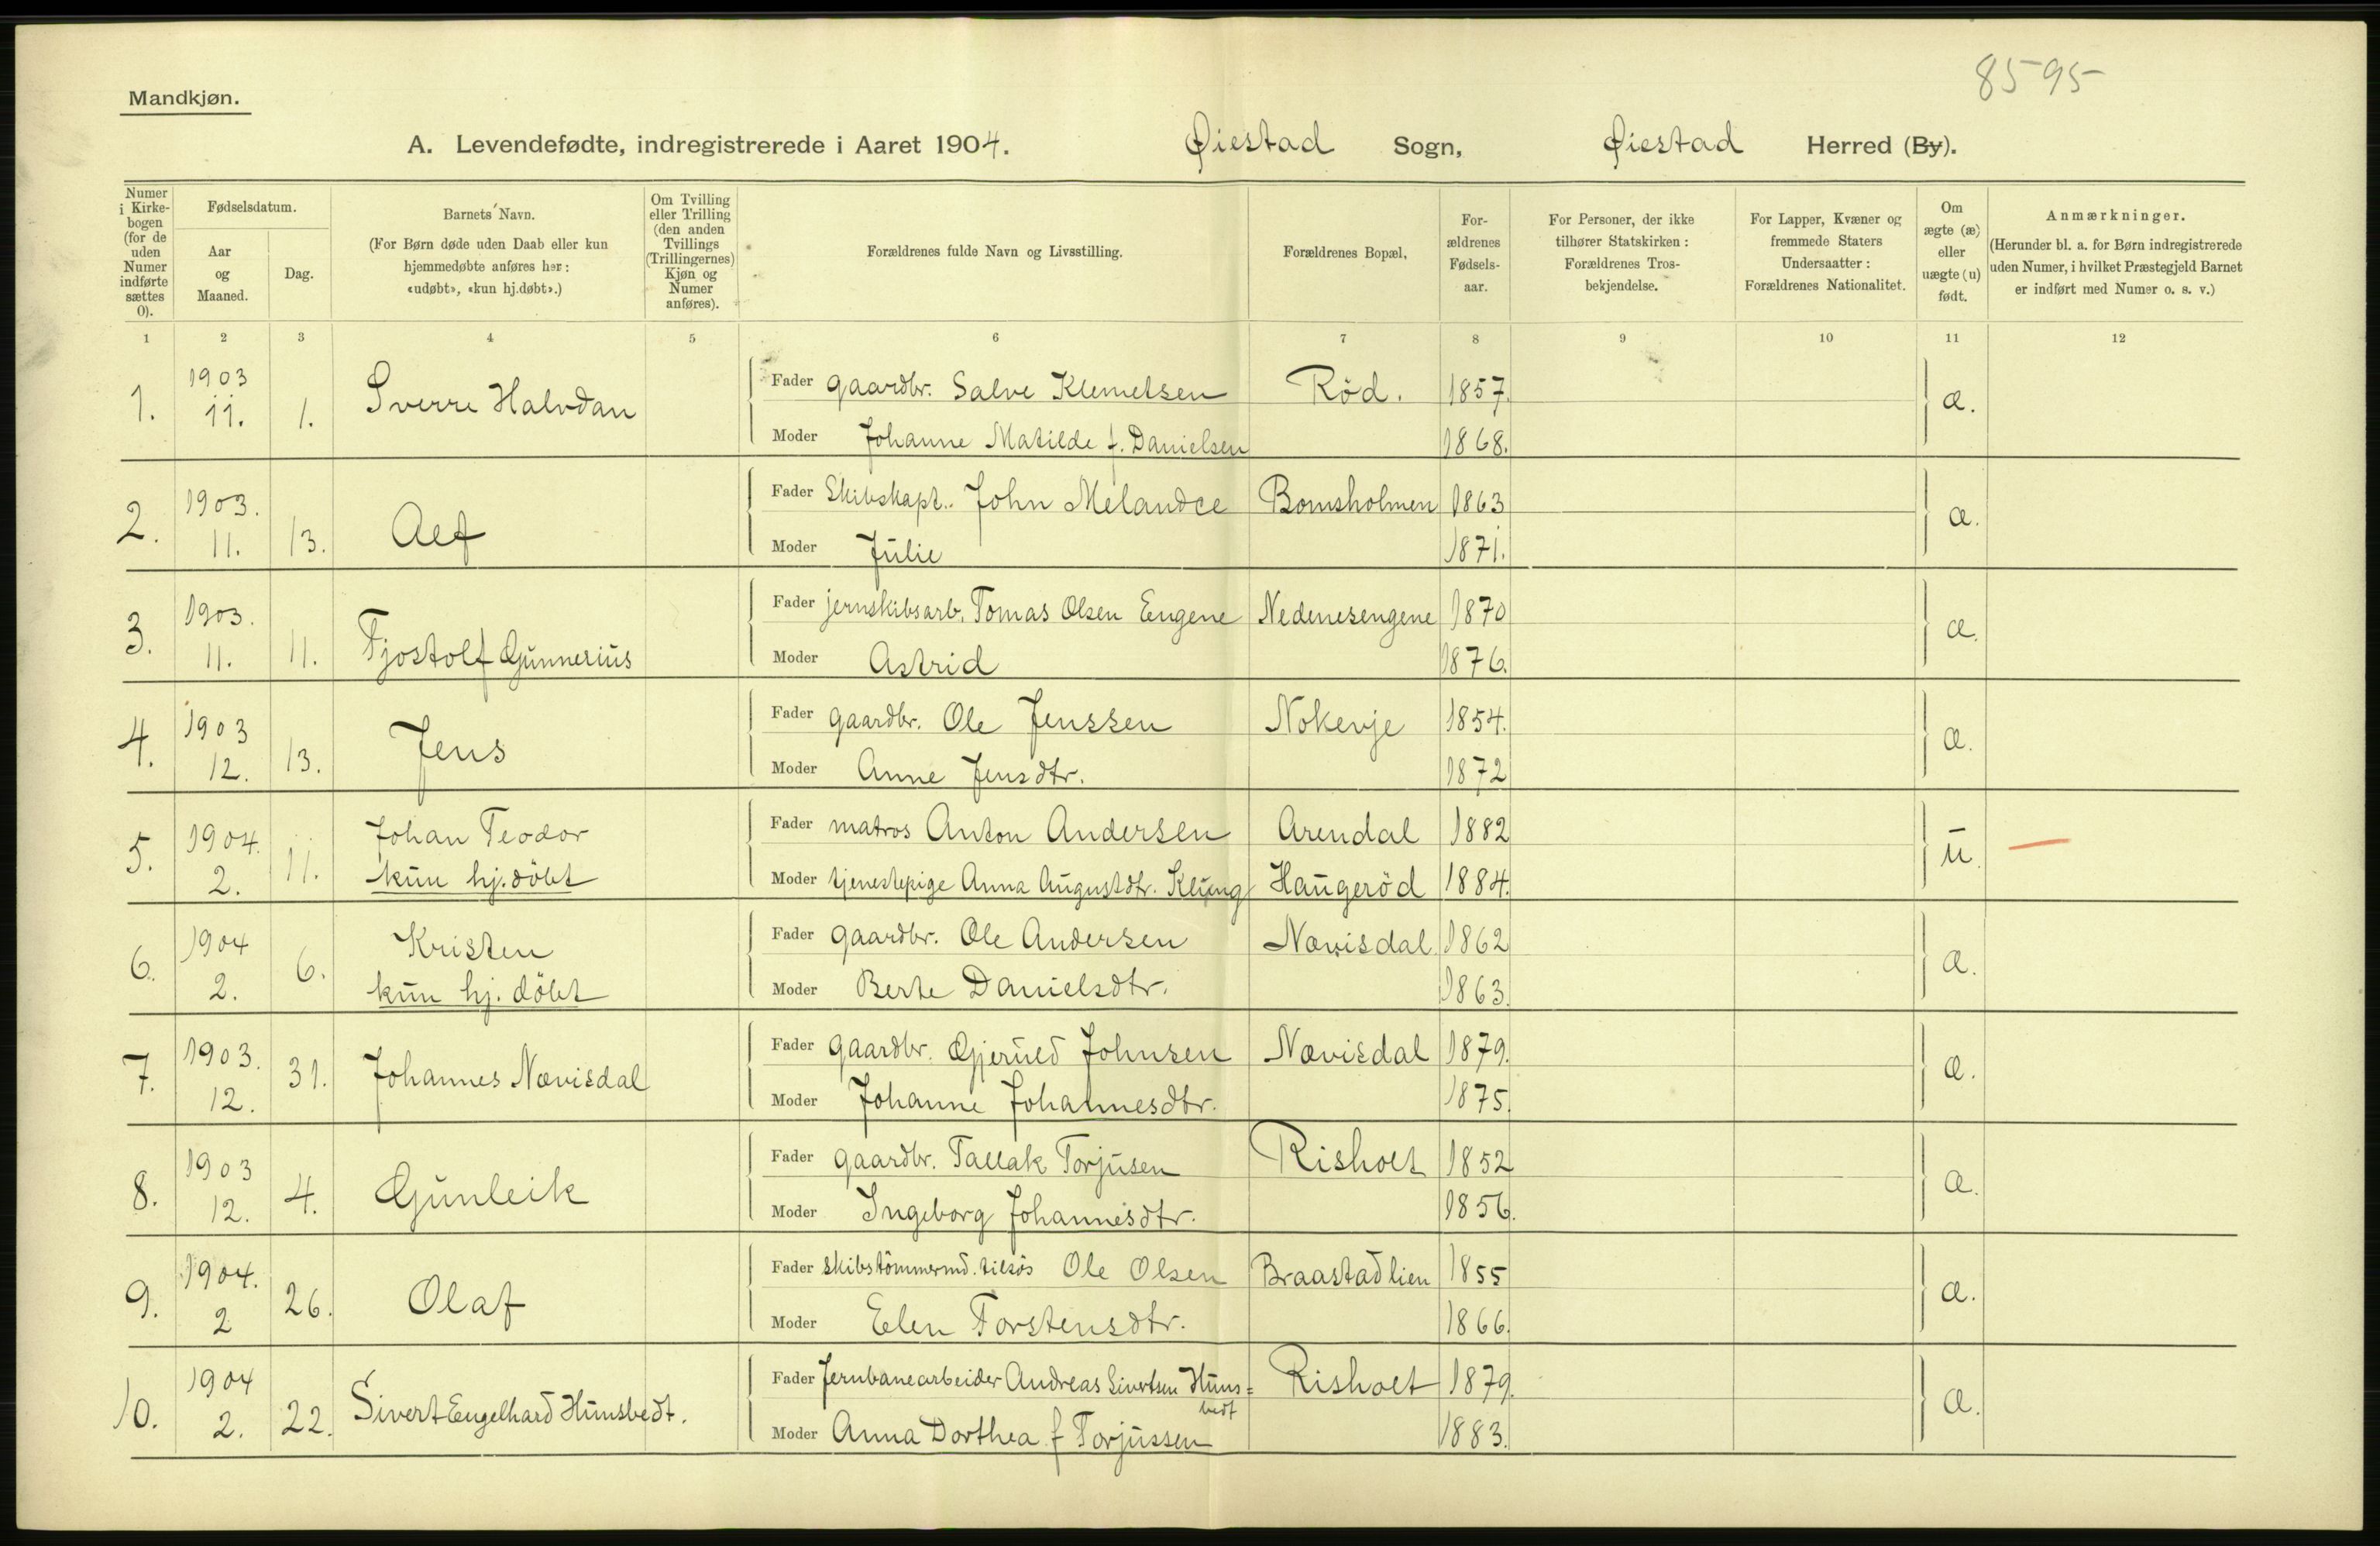 8595
Mandkjøn.
A. Levendefødte, indregistrerede i Aaret 1904. Øiestad Sogn, Øiestad Herred (By).
Numer i Kirkebogen (for de uden Numer indførte sættes 0).
Fødselsdatum.
Aar og Maaned.
Dag.
Barnets Navn.
(For Børn døde uden Daab eller kun hjemmedøbte anføres her: «udøbt», «kun hj.døbt».)
Om Tvilling eller Trilling (den anden Tvillings (Trillingernes) Kjøn og Numer anføres).
Forældrenes fulde Navn og Livsstilling.
Forældrenes Bopæl,
Forældrenes Fødselsaar.
For Personer, der ikke tilhører Statskirken: Forældrenes Trosbekjendelse.
For Lapper, Kvæner og fremmede Staters Undersaatter: Forældrenes Nationalitet.
Om ægte (æ) eller uægte (u) født.
Anmærkninger.
(Herunder bl. a. for Børn indregistrerede uden Numer, i hvilket Præstegjeld Barnet er indført med Numer o. s. v.)
1 2 3 4 5 6 7 8 9 10 11 12
1. 1903 11. 1. Sverre Halvdan Fader gaardbr. Salve Klemetsen Rød. 1857. æ.
Moder Johanne Matilde f. Danielsen 1868.
2. 1903. 11. 13. Alf Fader Skibskapt. John Melandce Bomsholmen 1863 æ.
Moder Julie 1871.
3. 1903. 11. 11. Tjostolf Gunnerius Fader jernskibsarb. Tomas Olsen Engene Nedenesengene 1870 æ.
Moder Astrid 1876.
4. 1903 12. 13. Jens Fader gaardbr. Ole Jenssen Nokevje 1854. æ.
Moder Anne Jensdtr. 1872
5. 1904. 2. 11. Johan Teodor Fader matros Anton Andersen Arendal 1882 u.
kun hj.döbt Moder tjenestepige Anna Augustdtr. Klung Haugeröd 1884.
6. 1904 2. 6. Kristen Fader gaardbr. Ole Andersen Nævisdal 1862 æ.
kun hj. döbt Moder Berte Danielsdtr. 1863.
7. 1903. 12. 31. Johannes Nævisdal Fader gaardbr. Gjeruld Johnsen Nævisdal 1879. æ.
Moder Johanne Johannesdtr. 1875.
8. 1903 12. 4. Gunleik Fader gaardbr. Tallak Torjusen Risholt 1852 æ.
Moder Ingeborg Johannesdtr. 1856.
9. 1904. 2 26. Olaf Fader skibstömmermd. tilsös Ole Olsen Braastadlien 1855 æ.
Moder Elen Torstensdtr. 1866.
10. 1904 2. 22. Sivert Engelhard Hunsbedt. Fader Jernbanearbeider Andreas Sivertsen Huns=
bedt Risholt 1879. æ.
Moder Anna Dorthea f Torjussen 1883.